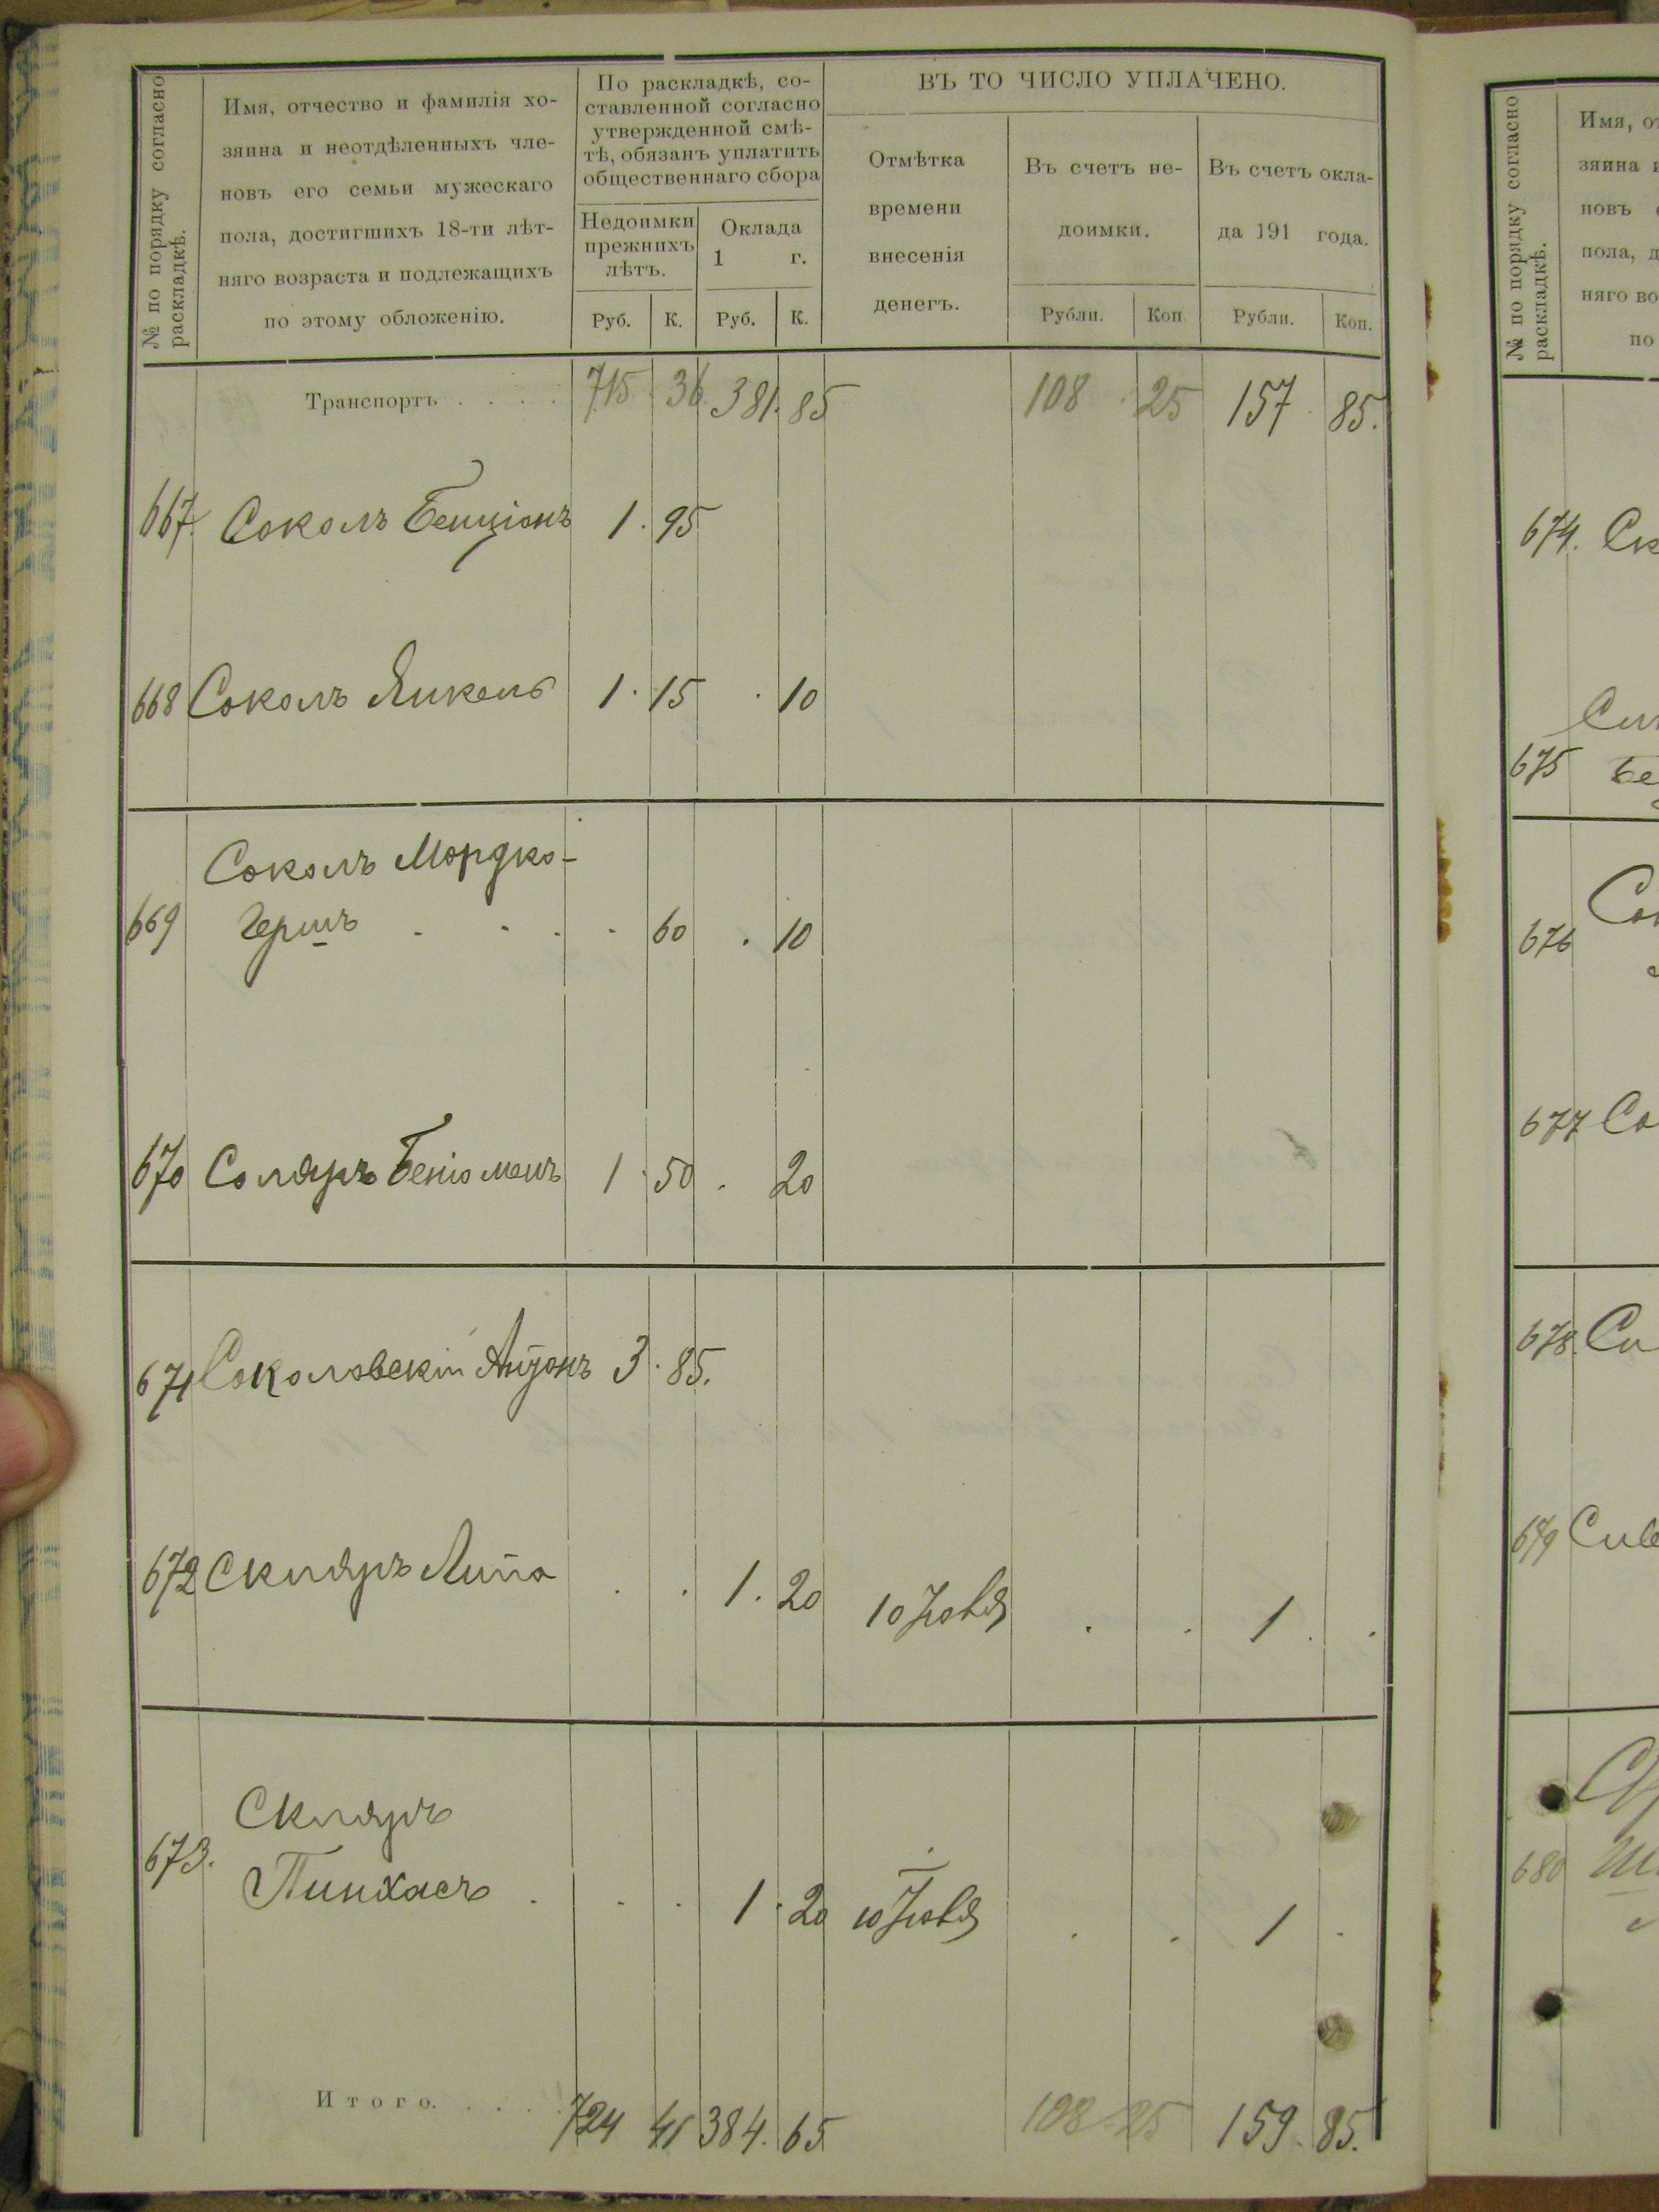 № по порядку согласно
раскладкѣ.
Имя, отчество и фамилія хо-
зяина и неотдѣленныхъ чле-
новъ его семьи мужескаго
пола, достигшихъ 18-ти лѣт-
няго возраста и подлежащихъ
по этому обложенію.
По раскладкѣ, со-
ставленной согласно
утвержденной смѣ-
тѣ, обязанъ уплатить
общественнаго сбора
Недоимки
прежнихъ
лѣтъ.
Оклада
1 г.
Руб. К. Руб. К.
ВЪ ТО ЧИСЛО УПЛАЧЕНО.
Отмѣтка
времени
внесенія
денегъ.
Въ счетъ не-
доимки.
Въ счетъ окла-
да 191 года.
Рубли. Коп Рубли. Коп.
Транспортъ . . . . 715 36 381. 85 108 25 157 85.
667. Соколъ Бенціонъ 1. 95
668 Соколъ Янкель 1. 15 . 10
Соколъ Мордко-
669 Гершъ . . . . 60 . 10
670 Соляръ Беніоменъ 1 50 . 20
671 Соколовскій Антонъ 3. 85.
672 Скляръ Липа . . 1. 20 10 Ноя . . 1 . .
Скляръ
673. Пинхасъ . . . 1. 20 10 Ноя . . 1 .
Итого. . . . . 724 41 384. 65 108 25 159. 85.
№ по порядку согласно
раскладкѣ.
Имя, от
зяина и
новъ
пола, д
няго во
по
674. Ск
675 Бе
676 Со
677 Со
678. Со
679
680